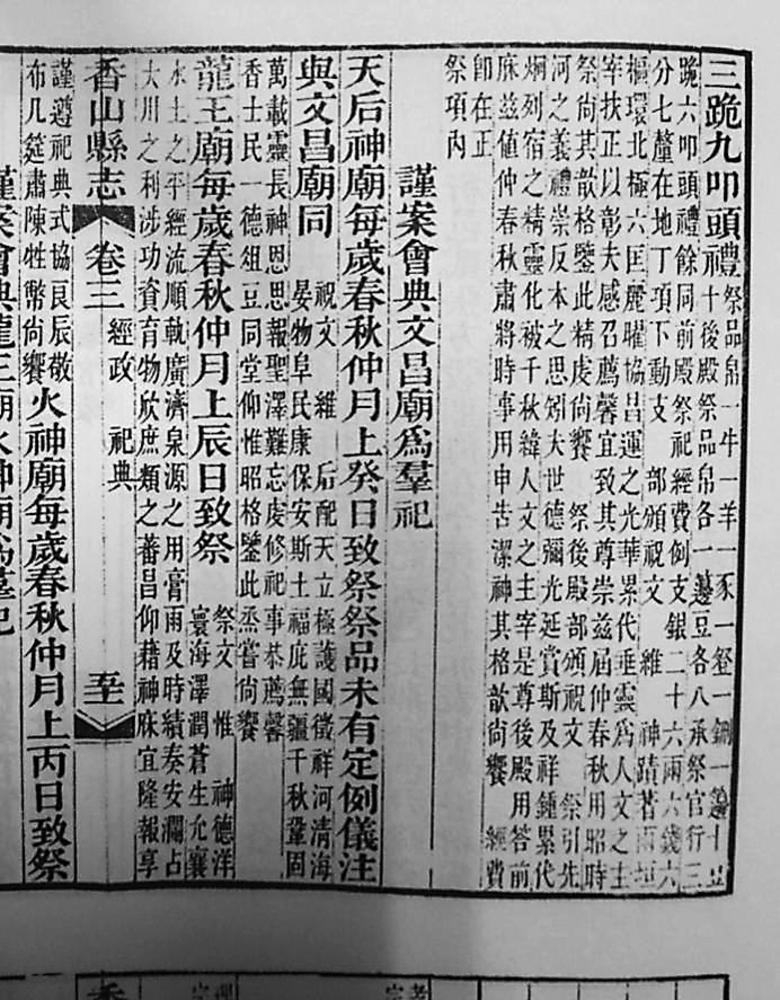 三跪九叩頭禮祭品帛一牛一羊一豕一登一鉶一籩十豆
十後殿祭品帛各一籩豆各八承祭官行三
跪六叩頭禮餘同前殿祭祀經費例支銀二十六兩六錢六
分七釐在地丁項下動支 部頒祝文 維 神蹟著
樞環北極六匡麗曜協昌運之光華累代垂靈爲人文之主
宰扶正以彰夫感召薦馨宜致其尊崇茲屆仲春秋用昭時
祭尙其歆格鑒此精虔尙饗 祭後殿部頒祝文 祭引先
河之義禮崇反本之思矧夫世德彌光延賞斯及祥鍾累代
炯列宿之精靈化被千秋緯人文之主宰是尊後殿用答前
庥茲値仲春秋肅將時事用申告潔神其格歆尙饗 經費
卽在正
祭項內
謹案會典文昌廟爲羣祀
天后神廟每歲春秋仲月上癸日致祭祭品未有定例儀注
與文昌廟同 祝文 維 后配天立極護國徵祥河淸海
晏物阜民康保安斯土福庇無疆千秋鞏固
萬載靈長神恩思報聖澤難忘虔修祀事恭薦馨
香士民一德俎豆同堂仰惟昭格鑒此烝嘗尙饗
龍王廟每歲春秋仲月上辰日致祭 祭文 惟 神德洋
寰海澤潤蒼生允襄
水土之平經流順軌廣濟泉源之用膏雨及時績奏安瀾占
大川之利涉功資育物欣庶類之蕃昌仰藉神庥宜隆報享
香山縣志 卷三 經政 祀典
謹遵祀典式協良辰敬
布几筵肅陳牲幣尙饗火神廟每歲春秋仲月上丙日致祭
謹案會典龍王廟火神廟爲羣祀